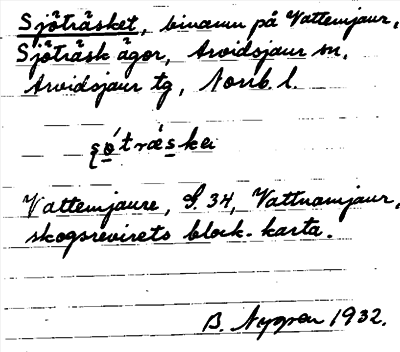 Sjöträsket, binamn på Vattemjaur,
Sjöträsk ägor, Arvidsjaur sn,
Arvidsjaur tg, Norrb. l.
Vattemjaure, S. 34, Vattnamjaur,
skogsrevirets block-karta.
B. Nygren 1932.